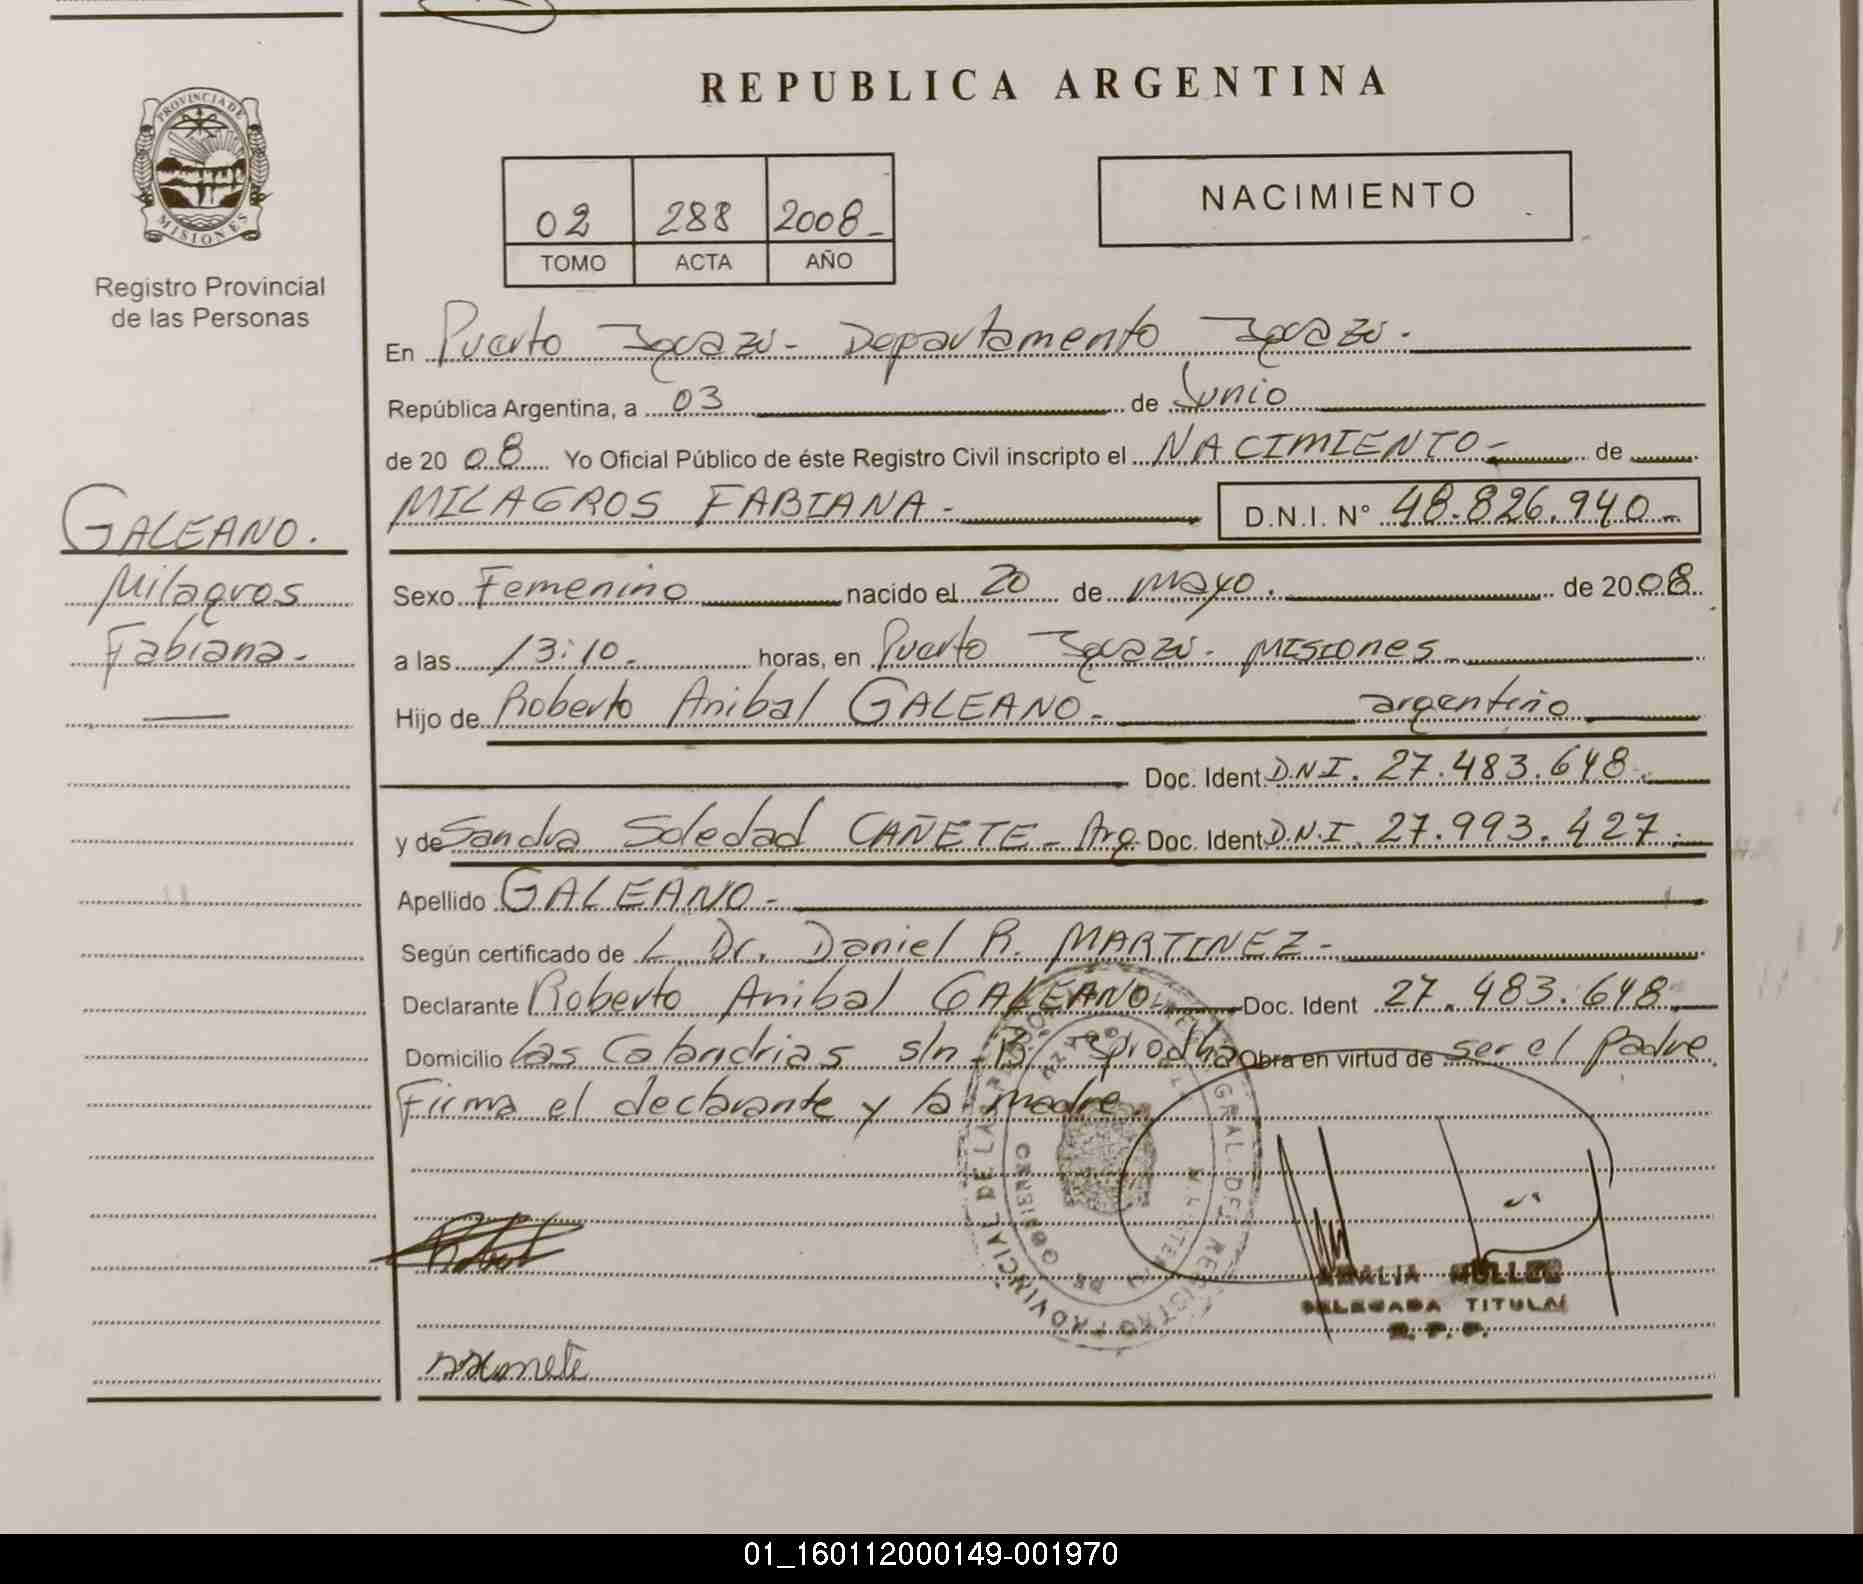 REPUBLICA ARGENTINA
PROVINCIA DE
MISIONES
Registro Provincial
de las Personas
02 288 2008-
TOMO ACTA AÑO
NACIMIENTO
En Puerto Iguazú - Departamento Iguazú.
República Argentina, a 03 de Junio
de 20 08 Yo Oficial Público de éste Registro Civil inscripto el NACIMIENTO - de
MILAGROS FABIANA - D.N.I. N° 48.826.940-
GALEANO.
Milagros
Fabiana-
Sexo Femenino nacido el 20 de mayo. de 20 08
a las 13:10. horas, en Puerto Iguazú - MISIONES
Hijo de Roberto Anibal GALEANO- argentino
Doc. Ident. D.N.I. 27.483.648.
y de Sandra Soledad CAÑETE - Arg. Doc. Ident. D.N.I. 27.993.427.
Apellido GALEANO-
Según certificado de L Dr. Daniel R. MARTINEZ-
Declarante Roberto Anibal GALEANO Doc. Ident 27.483.648
Domicilio las Calandrias s/n - B° Obra en virtud de ser el padre.
Firma el declarante y la madre.
AMALIA
DELEGADA TITULAR
R. P. P.
01_160112000149-001970